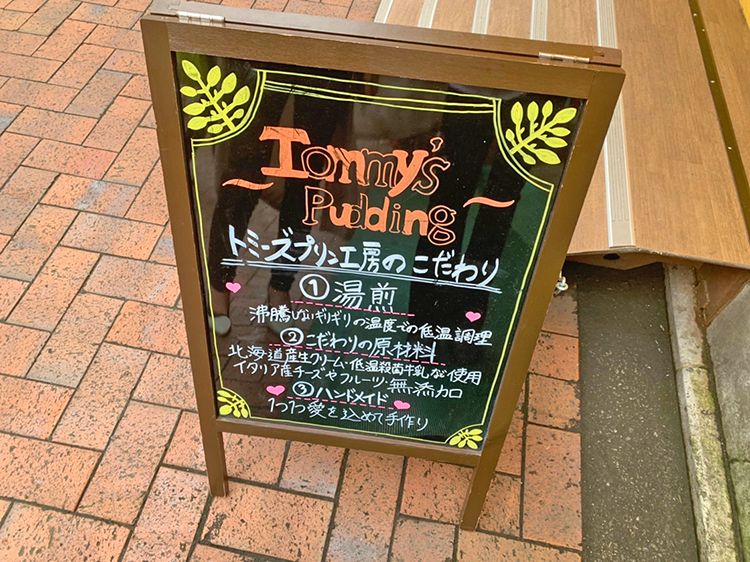 Tommy's
Pudding
トミーズプリン工房のこだわり
①湯煎
沸騰しないギリギリの温度での低温調理
②こだわりの原材料
北海道産生クリーム・低温殺菌牛乳など使用
イタリア産チーズやフルーツ・無添加
③ハンドメイド
1つ1つ愛を込めて手作り